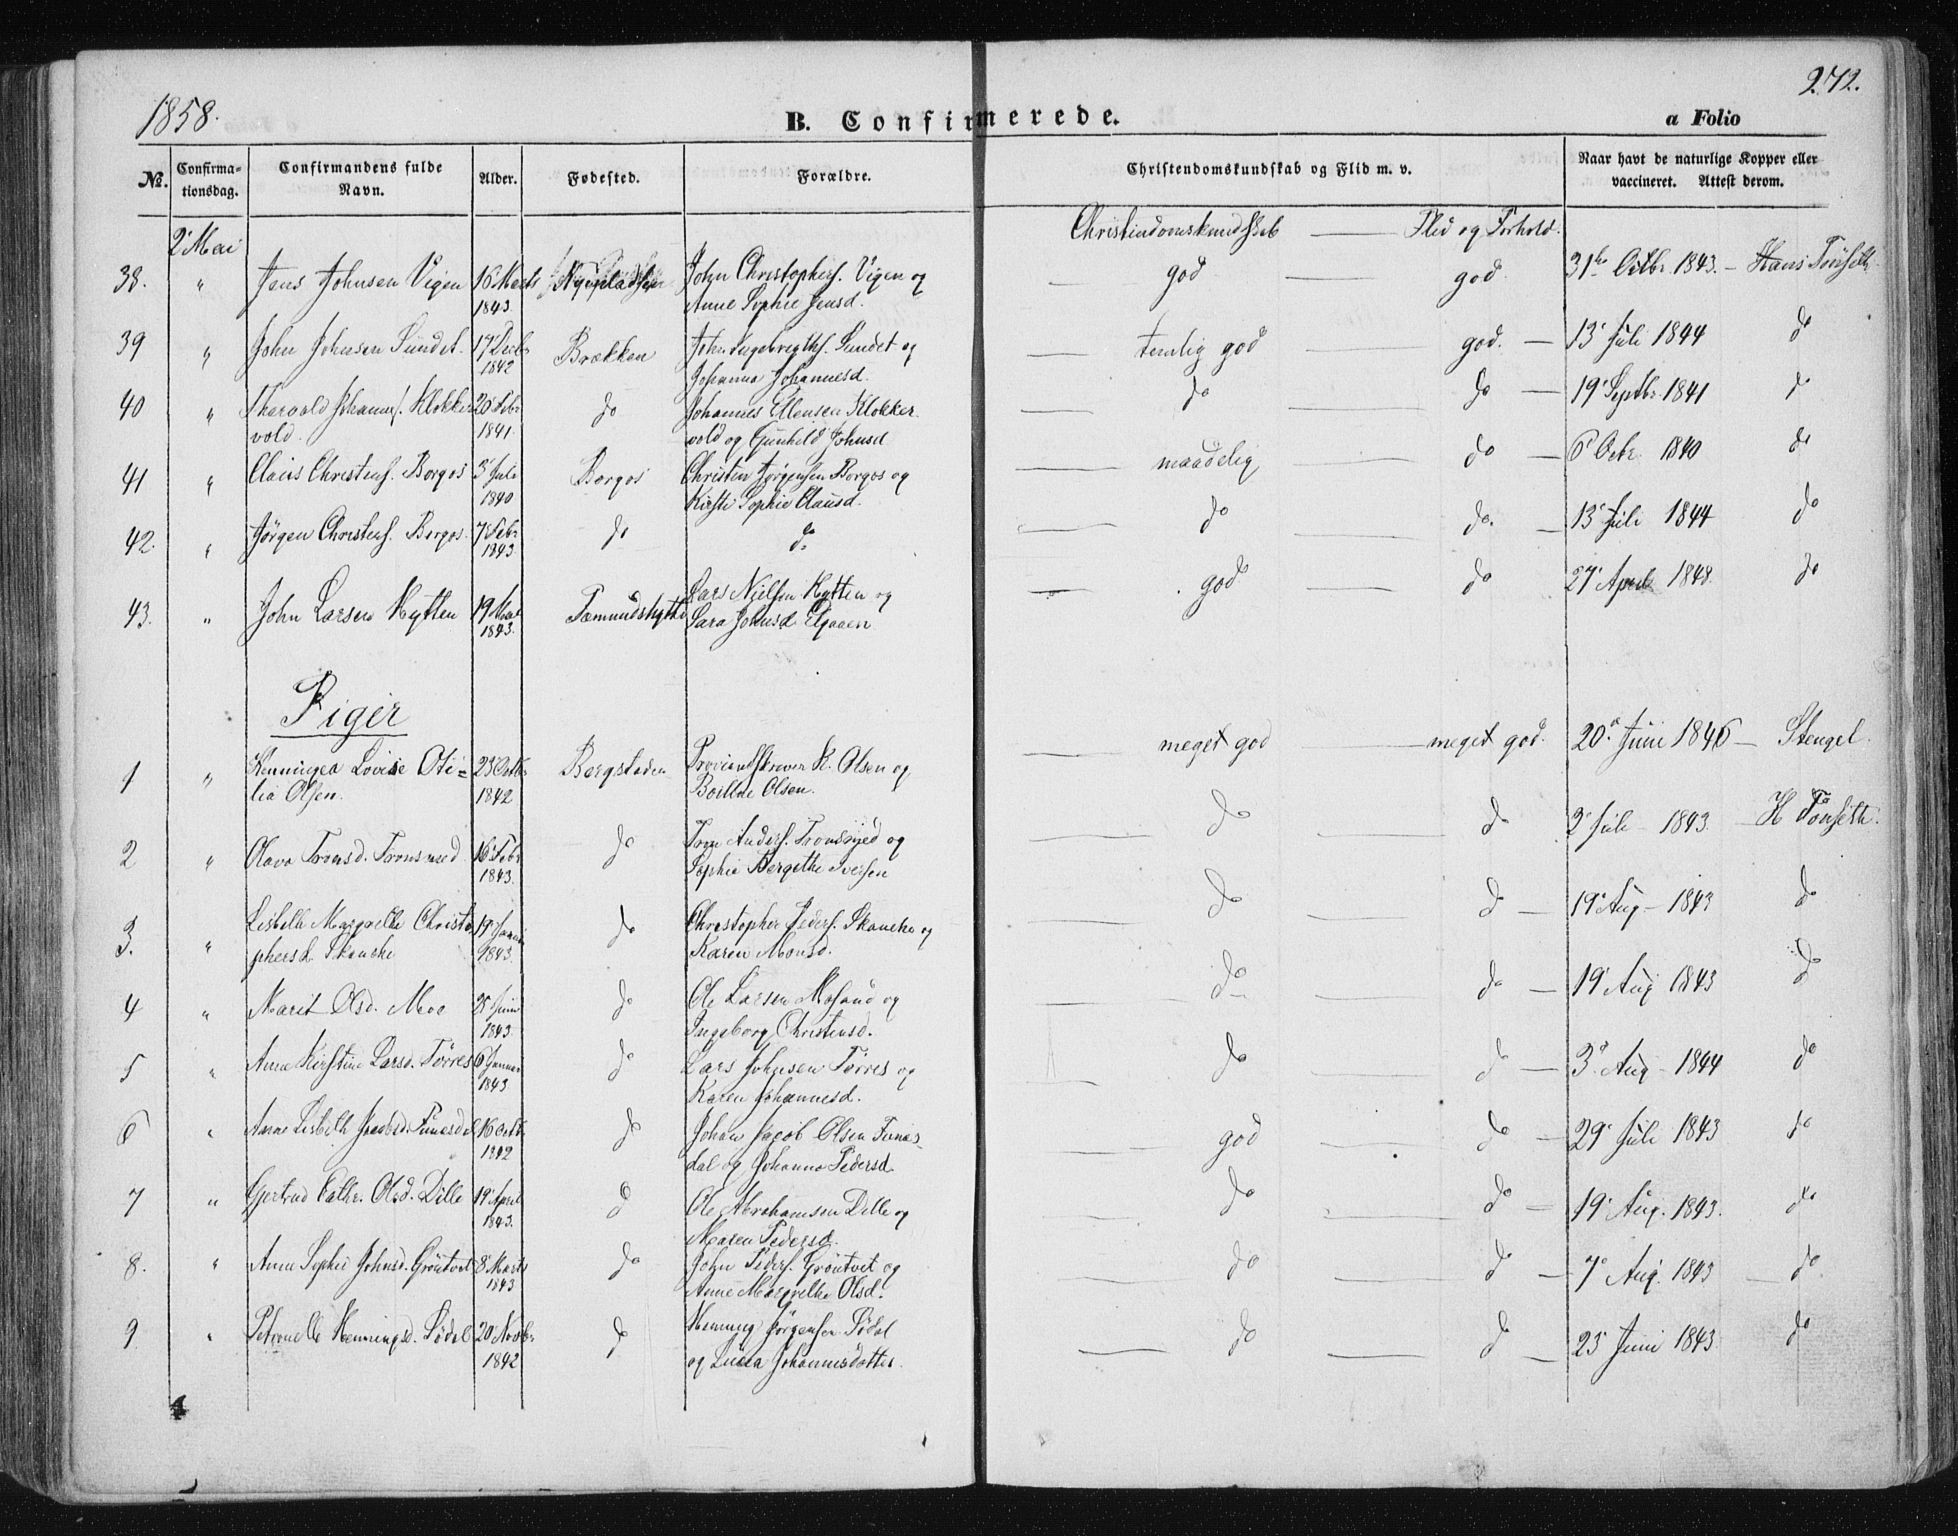 1858.
272.
B. Confirmerede.
a Folio
No. Confirmationsdag. Confirmandens fulde Navn. Alder. Fødested. Forældre. Christendomskundskab og Flid m. v. Naar havt de naturlige Kopper eller vaccineret. Attest derom.
2 Mai Christendomskundskab — Flid og Forhold.
38. " Jens Johnsen Vigen 16 Marts John Christophers. Vigen og — god — god. 31te Octbr 1843. — Hans Tönseth
1843. Anne Sophie Jensd.
39 " John Johnsen Sundet 17 Decbr Brækken John Ingebrigths. Sundet og — temlig god — god. — 13 Juli 1844 do
1842 Johanna Johannesd.
40 " Thorvald Johannes. Klokker 20 Febr do Johannes Ellensen Klokker — do — do — 19 Septbr 1841 do
vold. 1841. vold og Gunhild Johnsd
41 " Claus Christens. Borgos 3 Juli Borgos Christen Jørgensen Borgos og — maadelig — do — 6 Octr 1840 do
1840 Kirsti Sophie Clausd.
42. " Jørgen Christens. Borgos 7 Febr do do — do — do. — 13 Juli 1844 do
1843
43. " John Larsen Hytten 19 Fæmundshytte Lars Nielsen Hytten og — god — do — 27 April 1848. do
1843. Sara Johnsd Elgaaen
Piger
1 " Henningea Lovise Oti- 23 Octbr Bergstaden Proviantskriver K. Olsen og — meget god — meget god. 20 Juni 1846 — Stengel.
lia Olsen. 1842 Olsen.
2 " Olava Tronsd. Tronsmed 16 Febr do Tron Anders. Tronsmed og — do — do 2 Juli 1843. — H Tönseth.
1843. Sophie Bergithe Iversen
3. " Lisbeth Margrethe Christo 19 Januar do Christopher Peders. Skancke og — do — do — 19 Aug — 1843 do
phersd. Skancke 1843. Karen Monsd.
4 " Marit Olsd. Moe 25 Juni do Ole Larsen og — do — do — 19 Aug 1843 do
1843. Ingeborg Christensd.
5 " Anne Kirstine Larsd. Törres 6 Januar do Lars Johnsen Törres og — do — do — 3 Aug — 1844 do
1843 Karen Johannesd.
6 " Anne Lisbeth Jacobsd. Funesdal 16 Octbr do Johan Jacob Olsen Funes- — god — do — 29 Juli 1843 do
1842 dal og Johanna Pedersd.
7 " Gjertrud Cathr. Olsd. Dille 19 April do Ole Abrahamsen Dille og — do — do — 19 Aug. 1843. do
1843. Maren Pedersd.
8. " Anne Sophie Johnsd. Gröntvet 8 Marts do John Peders. Gröntvet og — do — do — 7 Aug. 1843 — do
1843 Anne Margrethe Olsd.
9 " Petronelle Hennings. Sødal 20 Novbr do Henning Jörgensen Sødal — do — do — 23 Juni 1843 do
1842 og Lucia Johannesdotter.